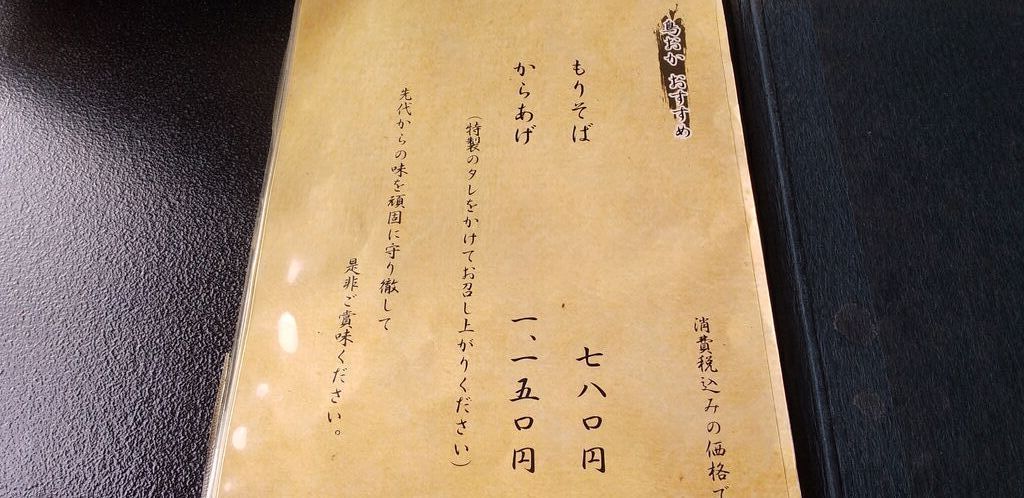 鳥おか おすすめ
消費税込みの価格で
もりそば 七八〇円
からあげ 一、一五〇円
（特製のタレをかけてお召し上がりください）
先代からの味を頑固に守り徹して
是非ご賞味ください。